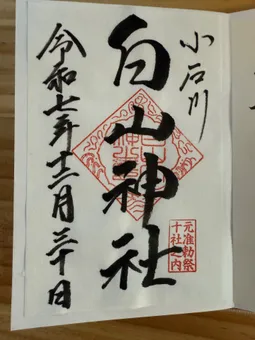 小石川
白山神社
元准勅祭
十社之内
令和七年十二月三十日